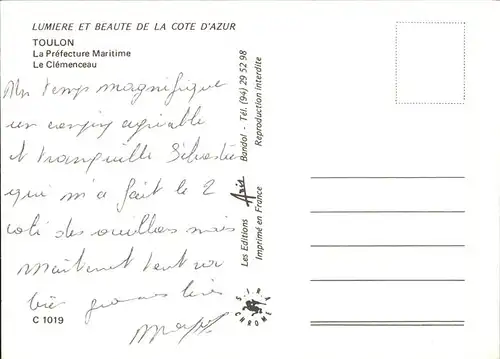 LUMIERE ET BEAUTE DE LA COTE D'AZUR
TOULON
La Préfecture Maritime
Le Clémenceau
Un temps magnifique
un camping agréable
et tranquille Silvestre
qui m a fait le 2
coté des oreilles mais
maintenant tout va
bien
C 1019
Les Editions Aris Bandol - Tél. (94) 29 52 98
Imprimé en France Reproduction interdite
SIRA CHROME